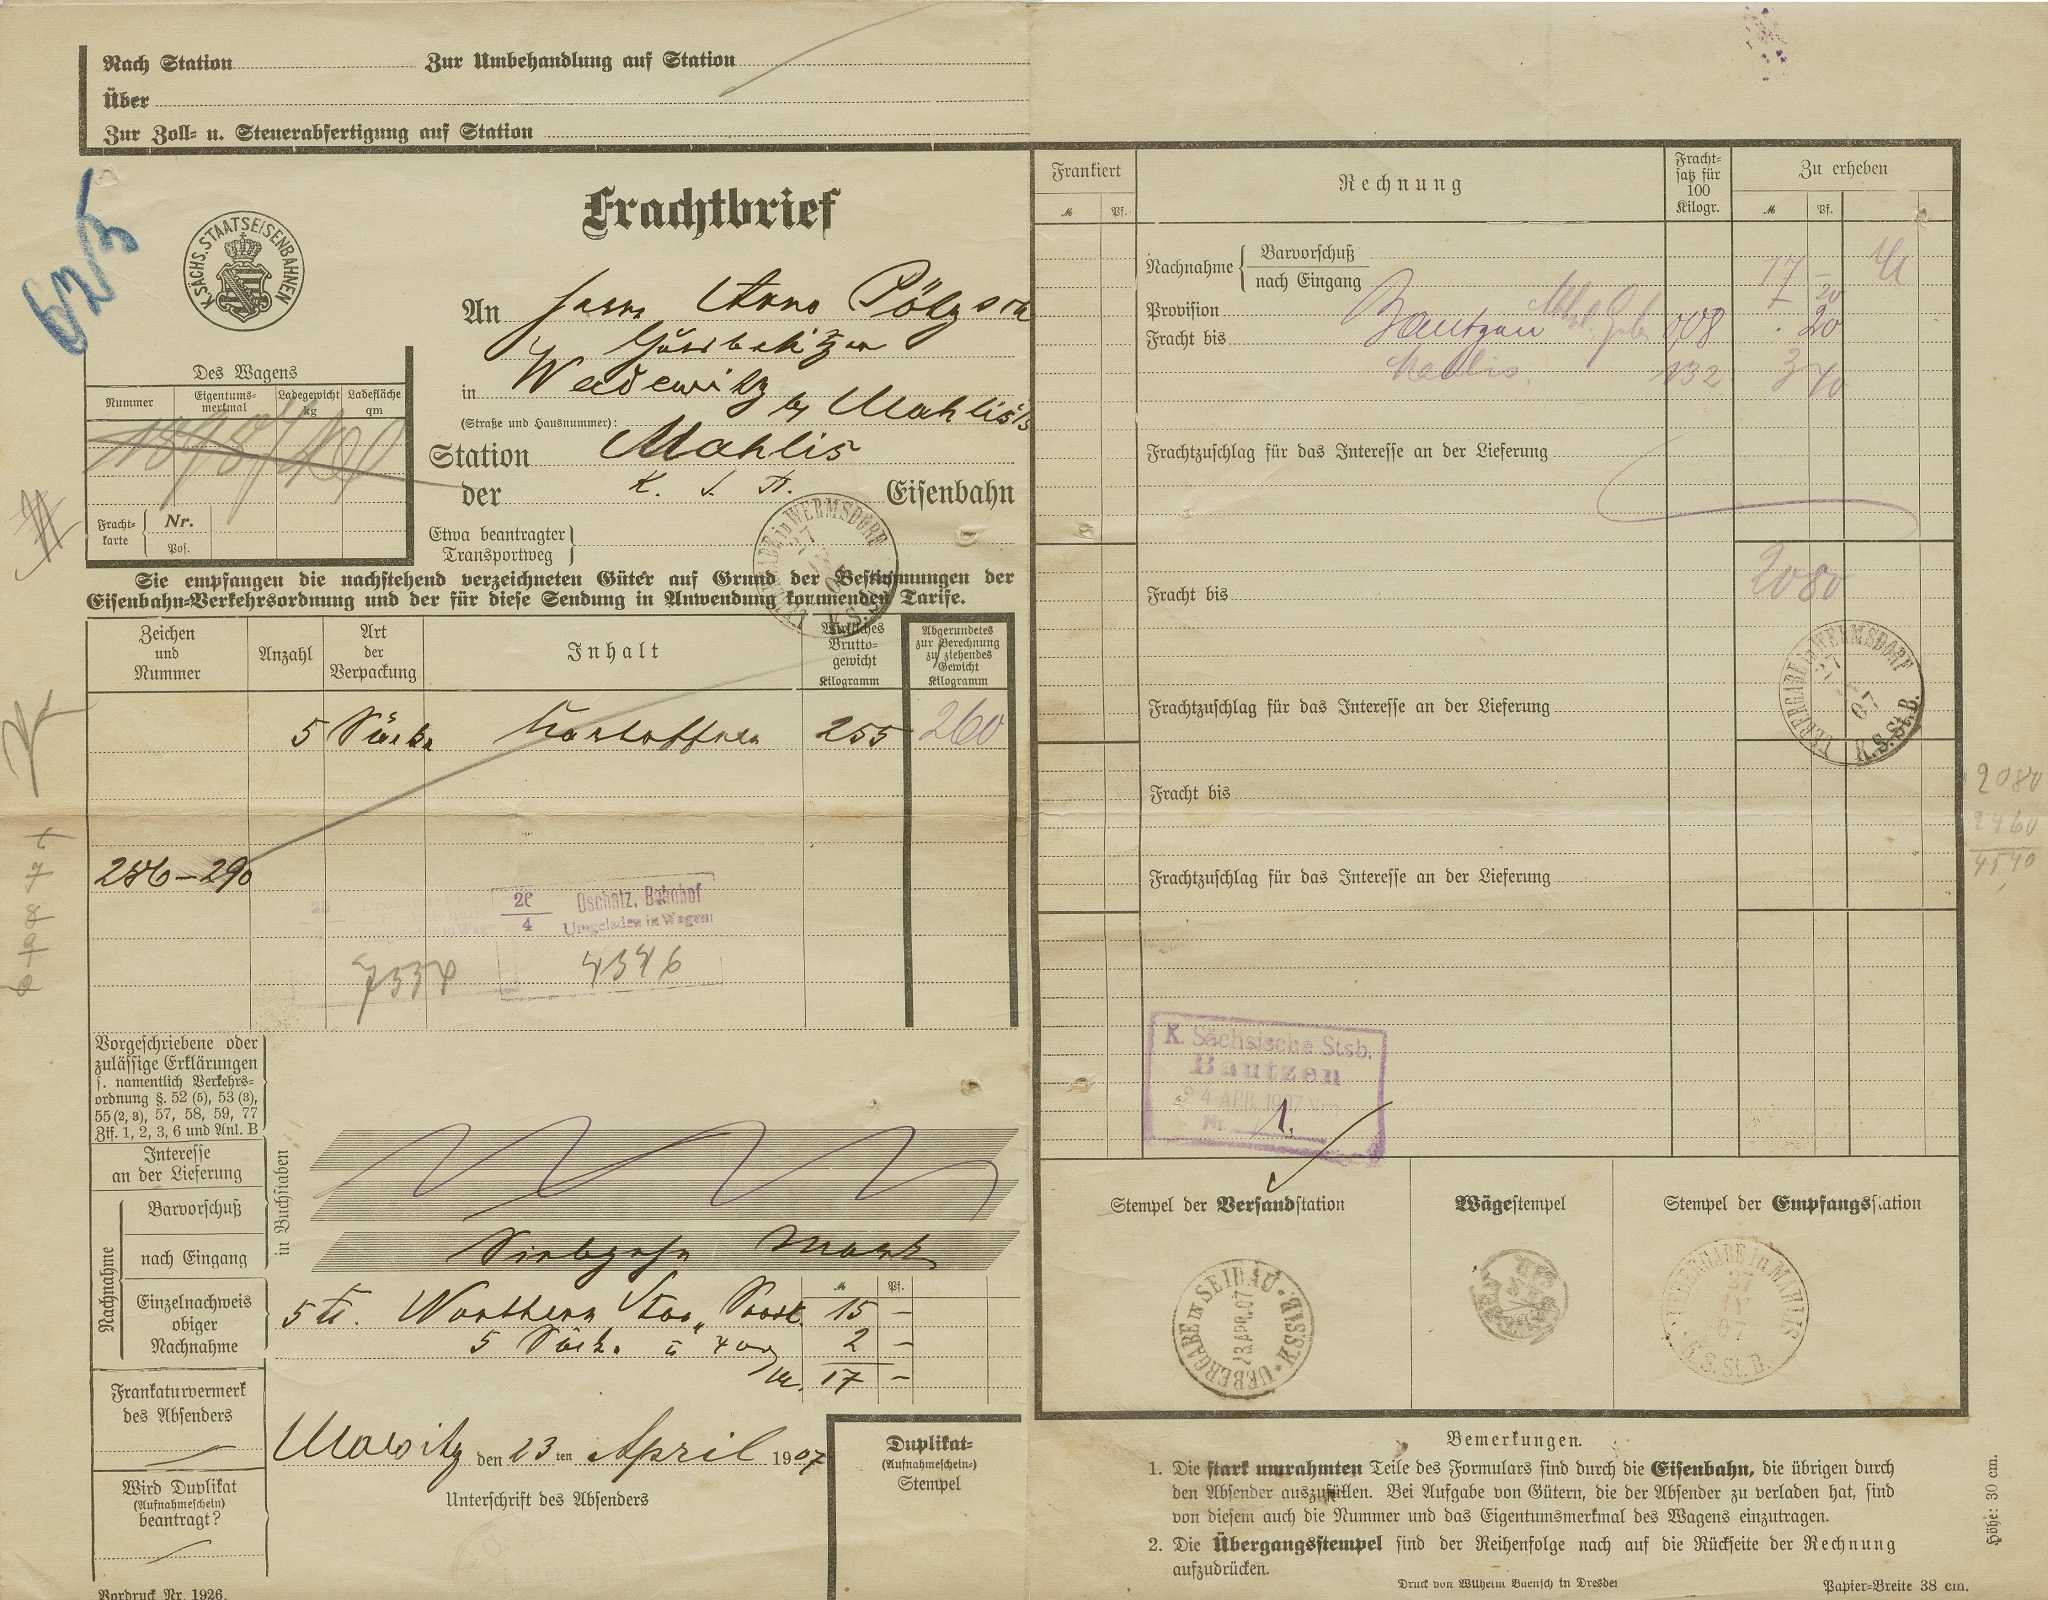 Nach Station
Zur Umbehandlung auf Station
Über
Zur Zoll- u. Steuerabfertigung auf Station
6215
K. SÄCHS. STAATSEISENBAHNEN
Frachtbrief
An Herrn Arno Pölzsch
Gutsbesitzer
in Wadewitz b/ Mahlis i/S
(Straße und Hausnummer):
Station Mahlis
der K. S. St. Eisenbahn
Etwa beantragter
Transportweg
UEBERGABE in WERMSDORF
Des Wagens
Nummer
Eigentums-
merkmal
Ladegewicht
kg
Ladefläche
qm
Fracht-
karte
Nr.
Pos.
Sie empfangen die nachstehend verzeichneten Güter auf Grund der Bestimmungen der
Eisenbahn-Verkehrsordnung und der für diese Sendung in Anwendung kommenden Tarife.
Zeichen
und
Nummer
Anzahl
Art
der
Verpackung
Inhalt
Wirkliches
Brutto-
gewicht
Kilogramm
Abgerundetes
zur Berechnung
zu ziehendes
Gewicht
Kilogramm
5 Säcke Kartoffeln 255 260
286–290
Oschatz, Bahnhof
Umgeladen in Wagen
4346
7334
Vorgeschriebene oder
zulässige Erklärungen
s. namentlich Verkehrs-
ordnung §. 52 (5), 53 (3),
55 (2, 3), 57, 58, 59, 77
Zif. 1, 2, 3, 6 und Anl. B
Interesse
an der Lieferung
in Buchstaben
Nachnahme
Barvorschuß
nach Eingang
Siebzehn Mark
Einzelnachweis
obiger
Nachnahme
M Pf.
5 Säck. 2 –
M. 17 –
Frankaturvermerk
des Absenders
den 23ten April 1907
Unterschrift des Absenders
Wird Duplikat
(Aufnahmeschein)
beantragt?
Duplikat-
(Aufnahmeschein-)
Stempel
Vordruck Nr. 1926.
Frankiert
M Pf.
Rechnung
Fracht-
satz für
100
Kilogr.
Zu erheben
M Pf.
Nachnahme
Barvorschuß
nach Eingang
17 –
Provision
20
Fracht bis Bautzen 0,08 20
Mahlis 132 3 40
Frachtzuschlag für das Interesse an der Lieferung
2080
Fracht bis
UEBERGABE in WERMSDORF
27
07
K. S. St. B.
Frachtzuschlag für das Interesse an der Lieferung
Fracht bis
2080
2460
4540
Frachtzuschlag für das Interesse an der Lieferung
K. Sächsische Stsb.
Bautzen
24 APR. 1907
Nr. 1.
Stempel der Versandstation
Wägestempel
Stempel der Empfangsstation
UEBERGABE IN SEIDAU · K.S.St.B.
23.APR.07
UEBERGABE in MAHLIS
07
K. S. St. B.
Bemerkungen.
1. Die stark umrahmten Teile des Formulars sind durch die Eisenbahn, die übrigen durch
den Absender auszufüllen. Bei Aufgabe von Gütern, die der Absender zu verladen hat, sind
von diesem auch die Nummer und das Eigentumsmerkmal des Wagens einzutragen.
2. Die Übergangsstempel sind der Reihenfolge nach auf die Rückseite der Rechnung
aufzudrücken.
Druck von Wilhelm Baensch in Dresden
Papier-Breite 38 cm.
Höhe: 30 cm.